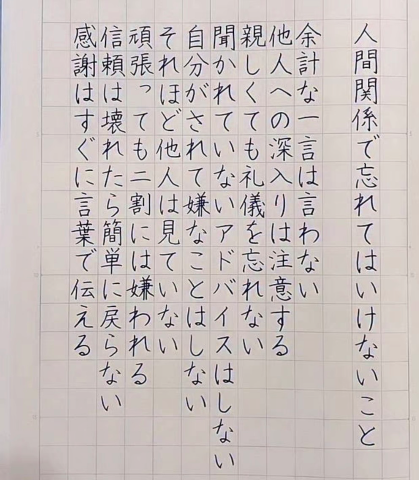 人間関係で忘れてはいけないこと
余計な一言は言わない
他人への深入りは注意する
親しくても礼儀を忘れない
聞かれていないアドバイスはしない
自分がされて嫌なことはしない
それほど他人は見ていない
頑張っても二割には嫌われる
信頼は壊れたら簡単に戻らない
感謝はすぐに言葉で伝える